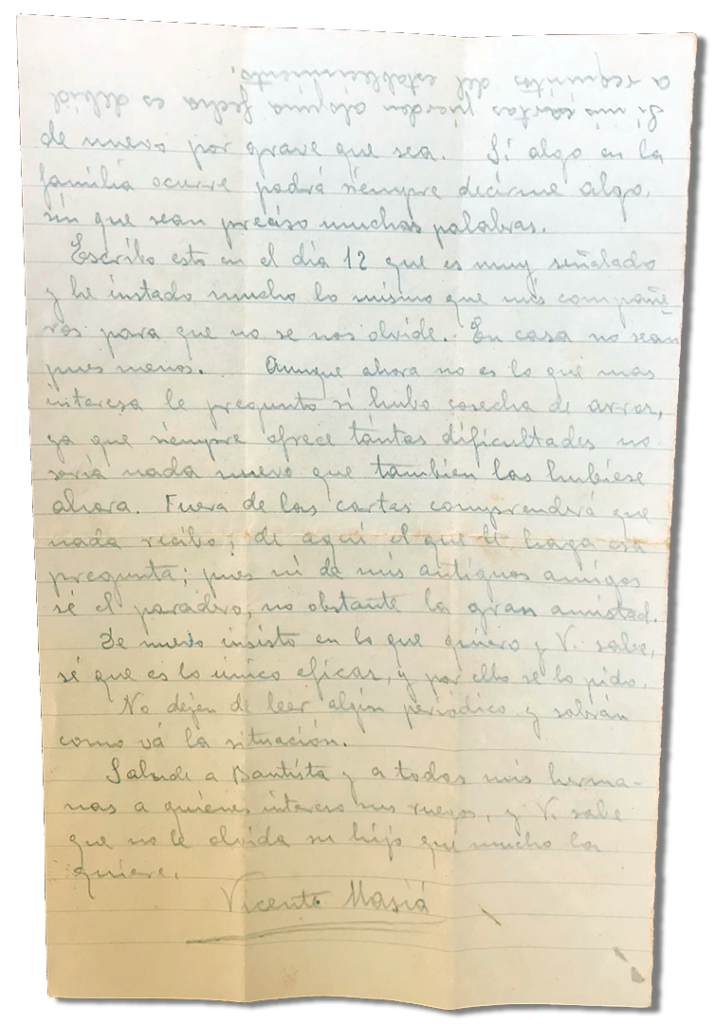 Si mis cartas pierden alguna fecha es debido
a requisitos del establecimiento.
de nuevo por grave que sea. Si algo en la
familia ocurre podrá siempre decirme algo,
sin que sean preciso muchas palabras.
Escribo esto en el dia 12 que es muy señalado
y he instado mucho lo mismo que mis compañe-
ros para que no se nos olvide. En casa no sean
pues menos. Aunque ahora no es lo que mas
interesa le pregunto si hubo cosecha de arroz,
ya que siempre ofrece tantas dificultades no
sería nada nuevo que tambien las hubiese
ahora. Fuera de las cartas comprenderá que
nada recibo; de aquí el que le haga esa
pregunta; pues ni de mis antiguos amigos
sé el paradero, no obstante la gran amistad.
De nuevo insisto en lo que quiero y V. sabe,
sé que es lo único eficaz, y por ello se lo pido.
No dejen de leer algún periódico y sabrán
como vá la situación.
Salude a Bautista y a todas mis herma-
nas a quienes intereso mis ruegos, y V. sabe
que no le olvida su hijo que mucho la
quiere.
Vicente Masiá